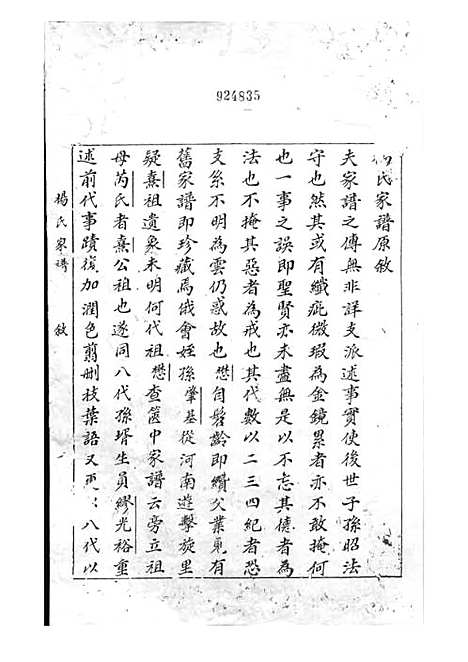 924835
楊氏家譜原敘
夫家譜之傳無非詳支派述事實使後世子孫昭法
守也然其或有纖疵微瑕為金鏡累者亦不敢掩何
也一事之誤即聖賢亦未盡無是以不忘其德者為
法也不掩其惡者為戒也其代數以二三四紀者恐
支系不明為雲仍惑故也懋自髫齡即纘父業見有
舊家譜即珍藏焉俄會姪孫肇基從河南遊擊旋里
疑熹祖遺象未明何代祖懋查篋中家譜云旁立祖
母芮氏者熹公祖也遂同八代孫壻生員繆光裕重
述前代事蹟復加潤色翦刪枝葉語又更、八代以
楊氏家譜 敘